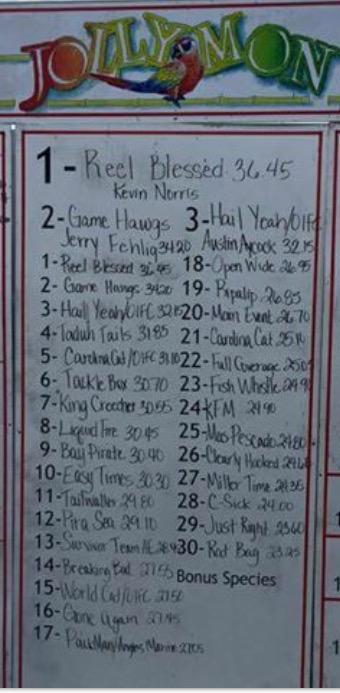 JOLLY MON
1 - Reel Blessed 36.45
Kevin Norris
2 - Game Hawgs 3 - Hail Yeah/OIFC
Jerry Fehlig 34.20 Austin Aycock 32.15
1 - Reel Blessed 36.45 18 - Open Wide 26.95
2 - Game Hawgs 34.20 19 - Pipalip 26.85
3 - Hail Yeah/OIFC 32.15 20 - Main Event 26.70
4 - Taduh Tails 31.85 21 - Carolina Cat
5 - Carolina Cat/OIFC 31.10 22 - Full Coverage
6 - Tackle Box 30.70 23 - Fish Whistle
7 - King Creecher 30.55 24 - KFM 24.90
8 - Liquid Fire 30.45 25 - Mas Pescado 24.80
9 - Bay Pirate 30.40 26 - Clearly Hooked
10 - Easy Times 30.30 27 - Miller Time 24.35
11 - Tailwalker 29.80 28 - C-Sick 24.00
12 - Pira Sea 29.10 29 - Just Right 23.60
13 - Survivor Team 30 - Rod Bag 23.25
14 - Breaking Bad 27.55 Bonus Species
15 - World Cat/OIFC 27.50
16 - Gone Again 27.45
17 - PackMan/Anglers Marine 27.05